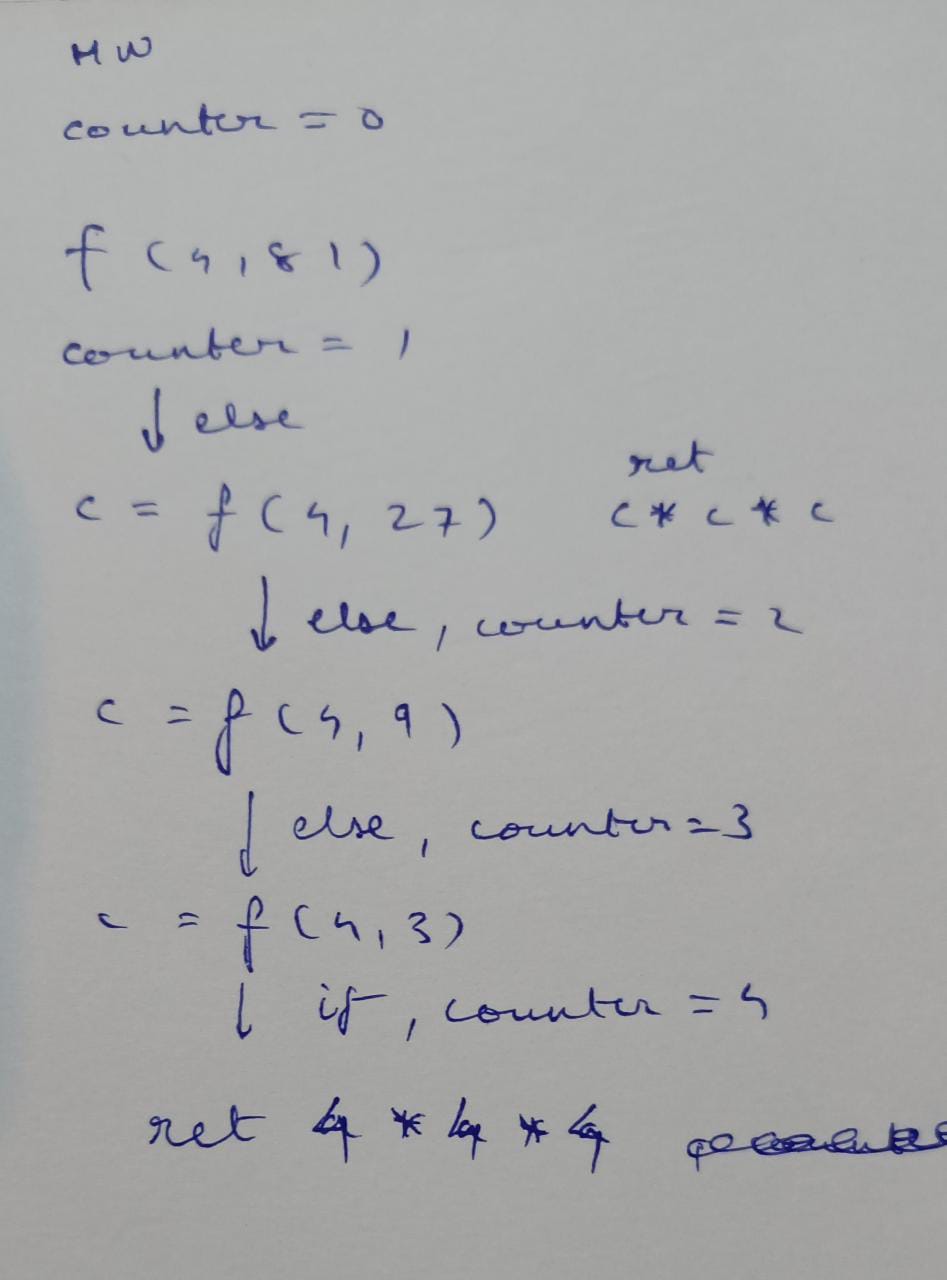 HW
counter = 0
f (4,81)
counter = 1
↓ else
c = f(4, 27) ret c * c * c
↓ else, counter = 2
c = f(4, 9)
↓ else, counter = 3
c = f(4,3)
↓ if, counter = 4
ret 4 * 4 * 4